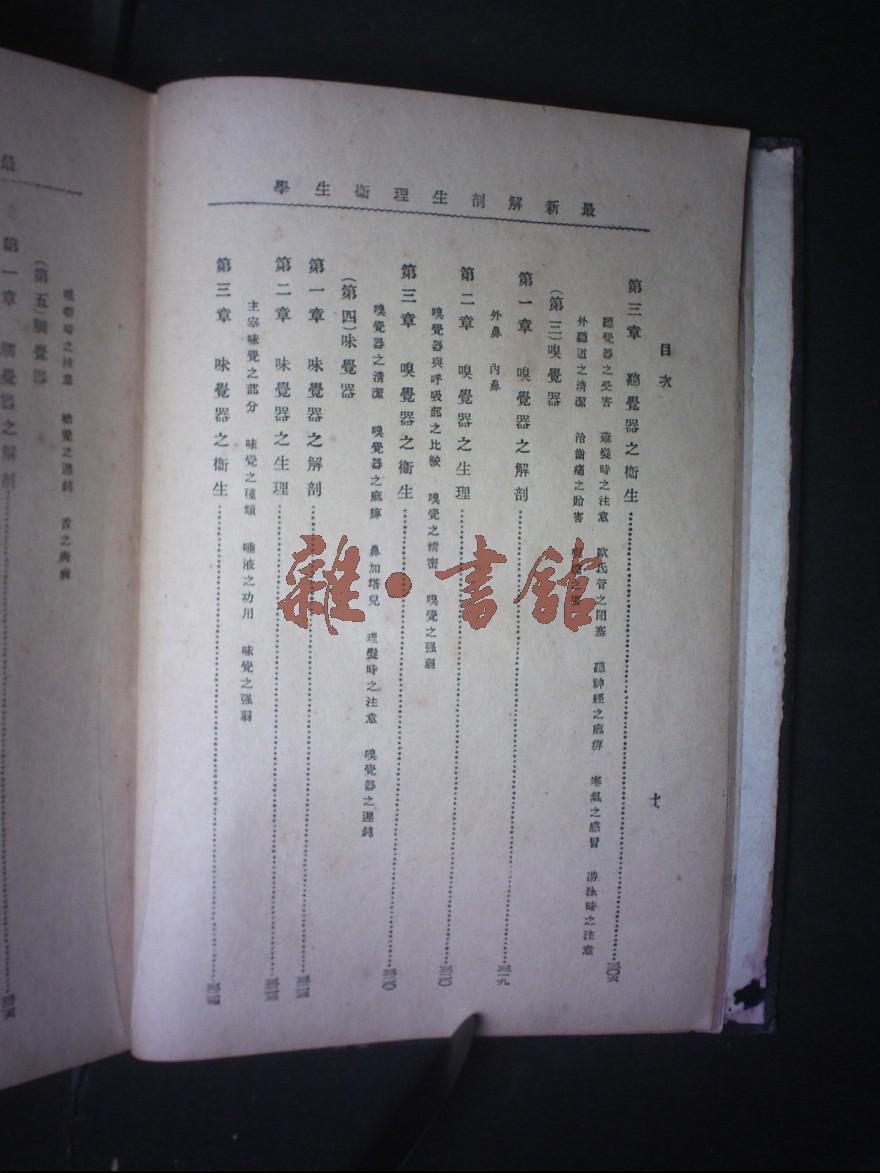 最新解剖生理衞生學
目次
十
第三章 聽覺器之衞生
聽覺器之受害 蓋髮時之注意 歐氏管之閉塞 聽神經之麻痹 寒氣之感冒 游泳時之注意
外聽道之清潔 治齒痛之貽害
(第三)嗅覺器
第一章 嗅覺器之解剖
外鼻 內鼻
第二章 嗅覺器之生理
嗅覺器與呼吸部之比較 嗅覺之精密 嗅覺之强弱
第三章 嗅覺器之衞生
嗅覺器之清潔 嗅覺器之麻痹 鼻加塔兒 理髮時之注意 嗅覺器之遲鈍
(第四)味覺器
第一章 味覺器之解剖
第二章 味覺器之生理
主宰味覺之部分 味覺之種類 唾液之功用 味覺之强弱
第三章 味覺器之衞生
最
之注意 味覺之遲鈍 舌之
(第五)觸覺器
第一章 觸覺器之解剖
雜·書館